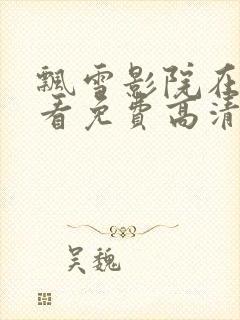 飘雪影院在
看免费高清
吴魏